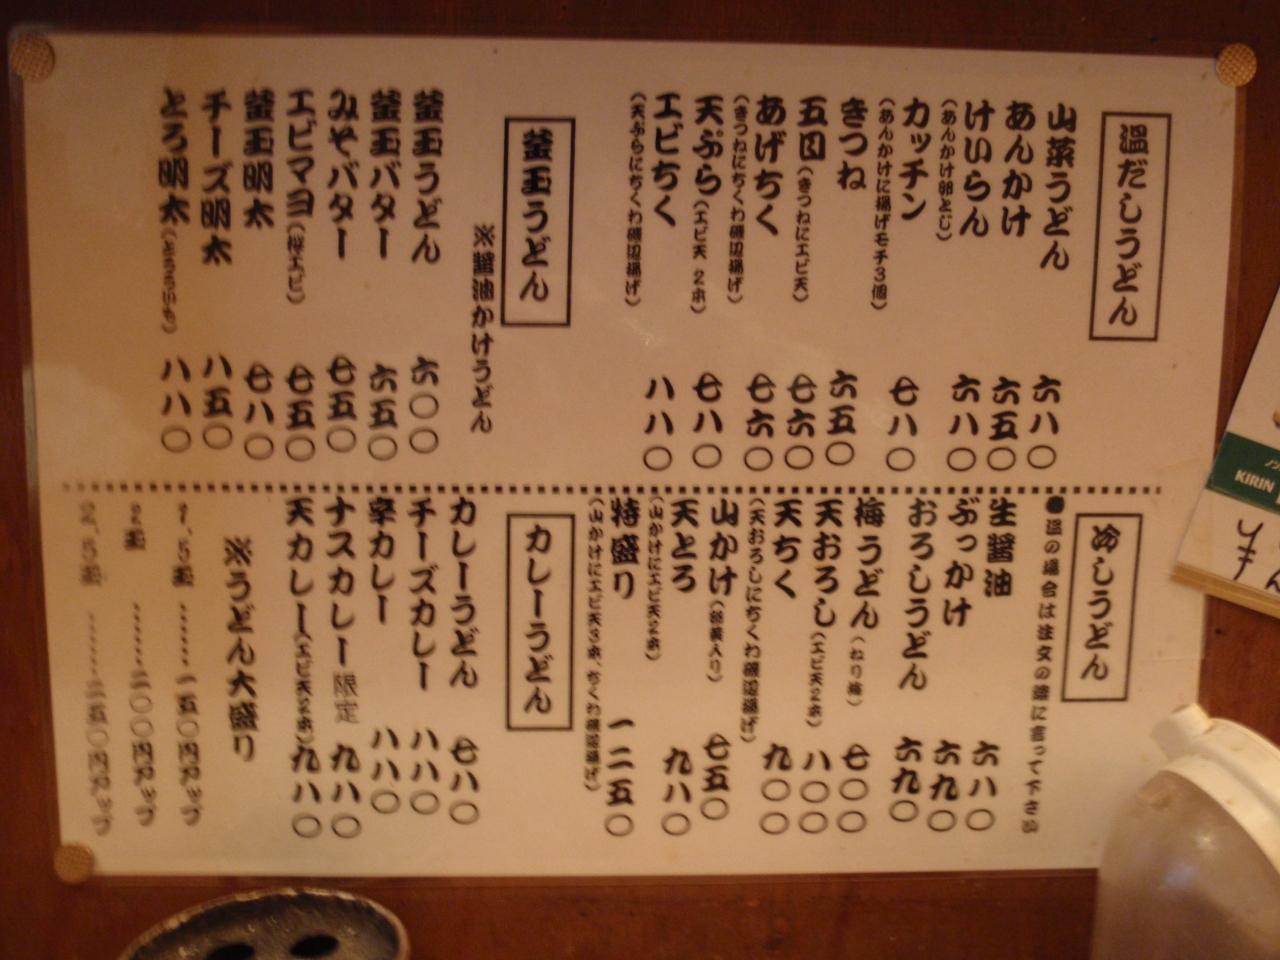 温だしうどん
山菜うどん 六八〇
あんかけ 六五〇
けいらん 六八〇
(あんかけ卵とじ)
カッチン 七八〇
(あんかけに揚げモチ3個)
きつね 六五〇
五目(きつねにエビ天) 七六〇
あげちく 七六〇
(きつねにちくわ磯辺揚げ)
天ぷら(エビ天 2本) 七八〇
エビちく 八八〇
(天ぷらにちくわ磯辺揚げ)
釜玉うどん
※醤油かけうどん
釜玉うどん 六〇〇
釜玉バター 六五〇
みそバター 七五〇
エビマヨ(桜エビ) 七五〇
釜玉明太 七八〇
チーズ明太 八五〇
とろ明太 八八〇
冷しうどん
温の場合は注文の際に言って下さい
生醤油 六八〇
ぶっかけ 六九〇
おろしうどん 六九〇
梅うどん(ねり梅) 七〇〇
天おろし(エビ天2本) 八〇〇
天ちく 九〇〇
(天おろしにちくわ磯辺揚げ)
山かけ(卵黄入り) 七五〇
天とろ 九八〇
(山かけにエビ天2本)
特盛り 一二五〇
(山かけにエビ天3本、ちくわ磯辺揚げ)
カレーうどん
カレーうどん 七八〇
チーズカレー 八八〇
辛カレー 八八〇
ナスカレー 限定 九八〇
天カレー(エビ天2本) 九八〇
※うどん大盛り
1,5玉 ……… 一五〇円アップ
2玉 ……… 二〇〇円アップ
2,5玉 ……… 二五〇円アップ
KIRIN
¥